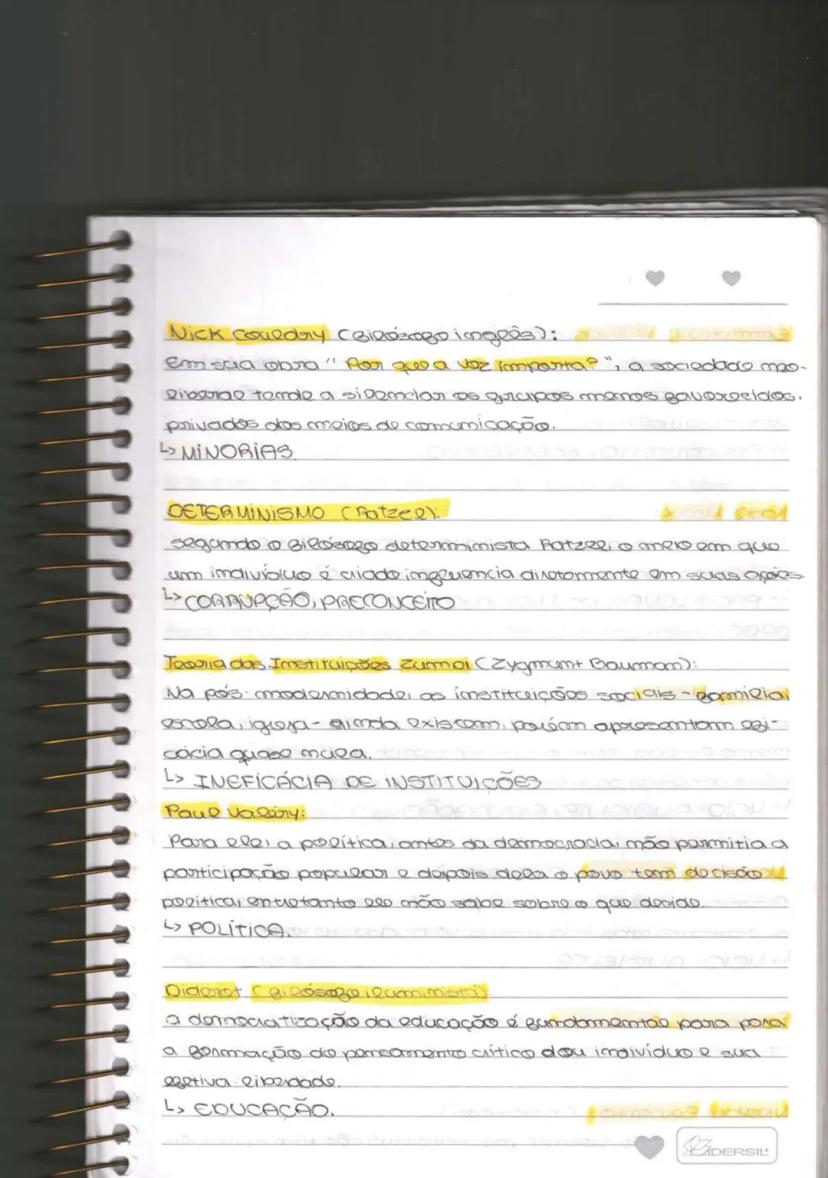 Nick Couldry (filósofo inglês):
Em sua obra "Por que a voz importa?", a sociedade neo-
liberal tende a silenciar os grupos menos favorecidos,
privados dos meios de comunicação.
↳ MINORIAS
DETERMINISMO (Ratzel).
segundo o filósofo determinista Ratzel, o meio em que
um indivíduo é criado influencia diretamente em suas ações
↳ CORRUPÇÃO, PRECONCEITO
Teoria das Instituições Zumbi (Zygmunt Bauman):
Na pós-modernidade, as instituições sociais - família,
escola, igreja - ainda existem, porém apresentam efi-
cácia quase nula.
↳ INEFICÁCIA DE INSTITUIÇÕES
Paul Valéry:
Para ele, a política, antes da democracia, não permitia a
participação popular e depois dela o povo tem decisão
política, entretanto ele não sabe sobre o que decide.
↳ POLÍTICA.
Diderot (filósofo iluminista)
a democratização da educação é fundamental para para
a formação do pensamento crítico dou indivíduo e sua
efetiva liberdade.
↳ EDUCAÇÃO.